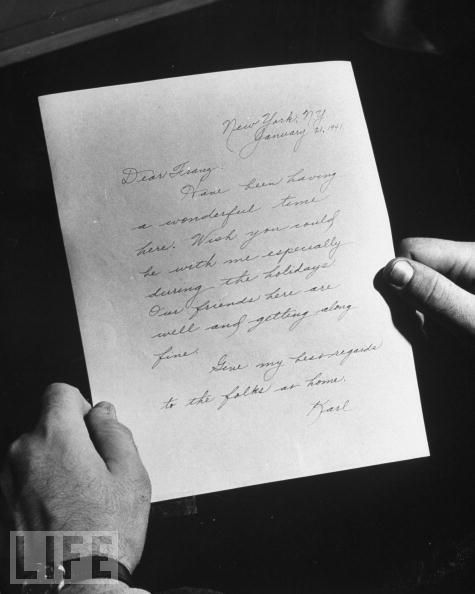 New York, N.Y.
January 21, 1941
Dear Franz:
Have been having
a wonderful time
here. Wish you could
be with me especially
during the holidays.
Our friends here are
well and getting along
fine.
Give my best regards
to the folks at home.
Karl
LIFE